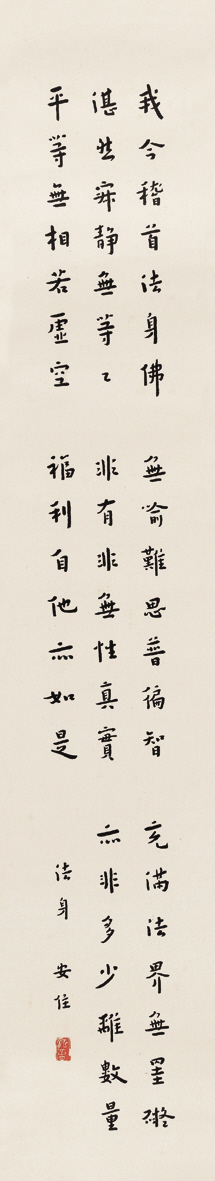 我今稽首法身佛　無喻難思普徧智　充滿法界無罣礙
湛然寂靜無等〻　非有非無性真實　亦非多少離數量
平等無相若虛空　福利自他亦如是　法身　安住